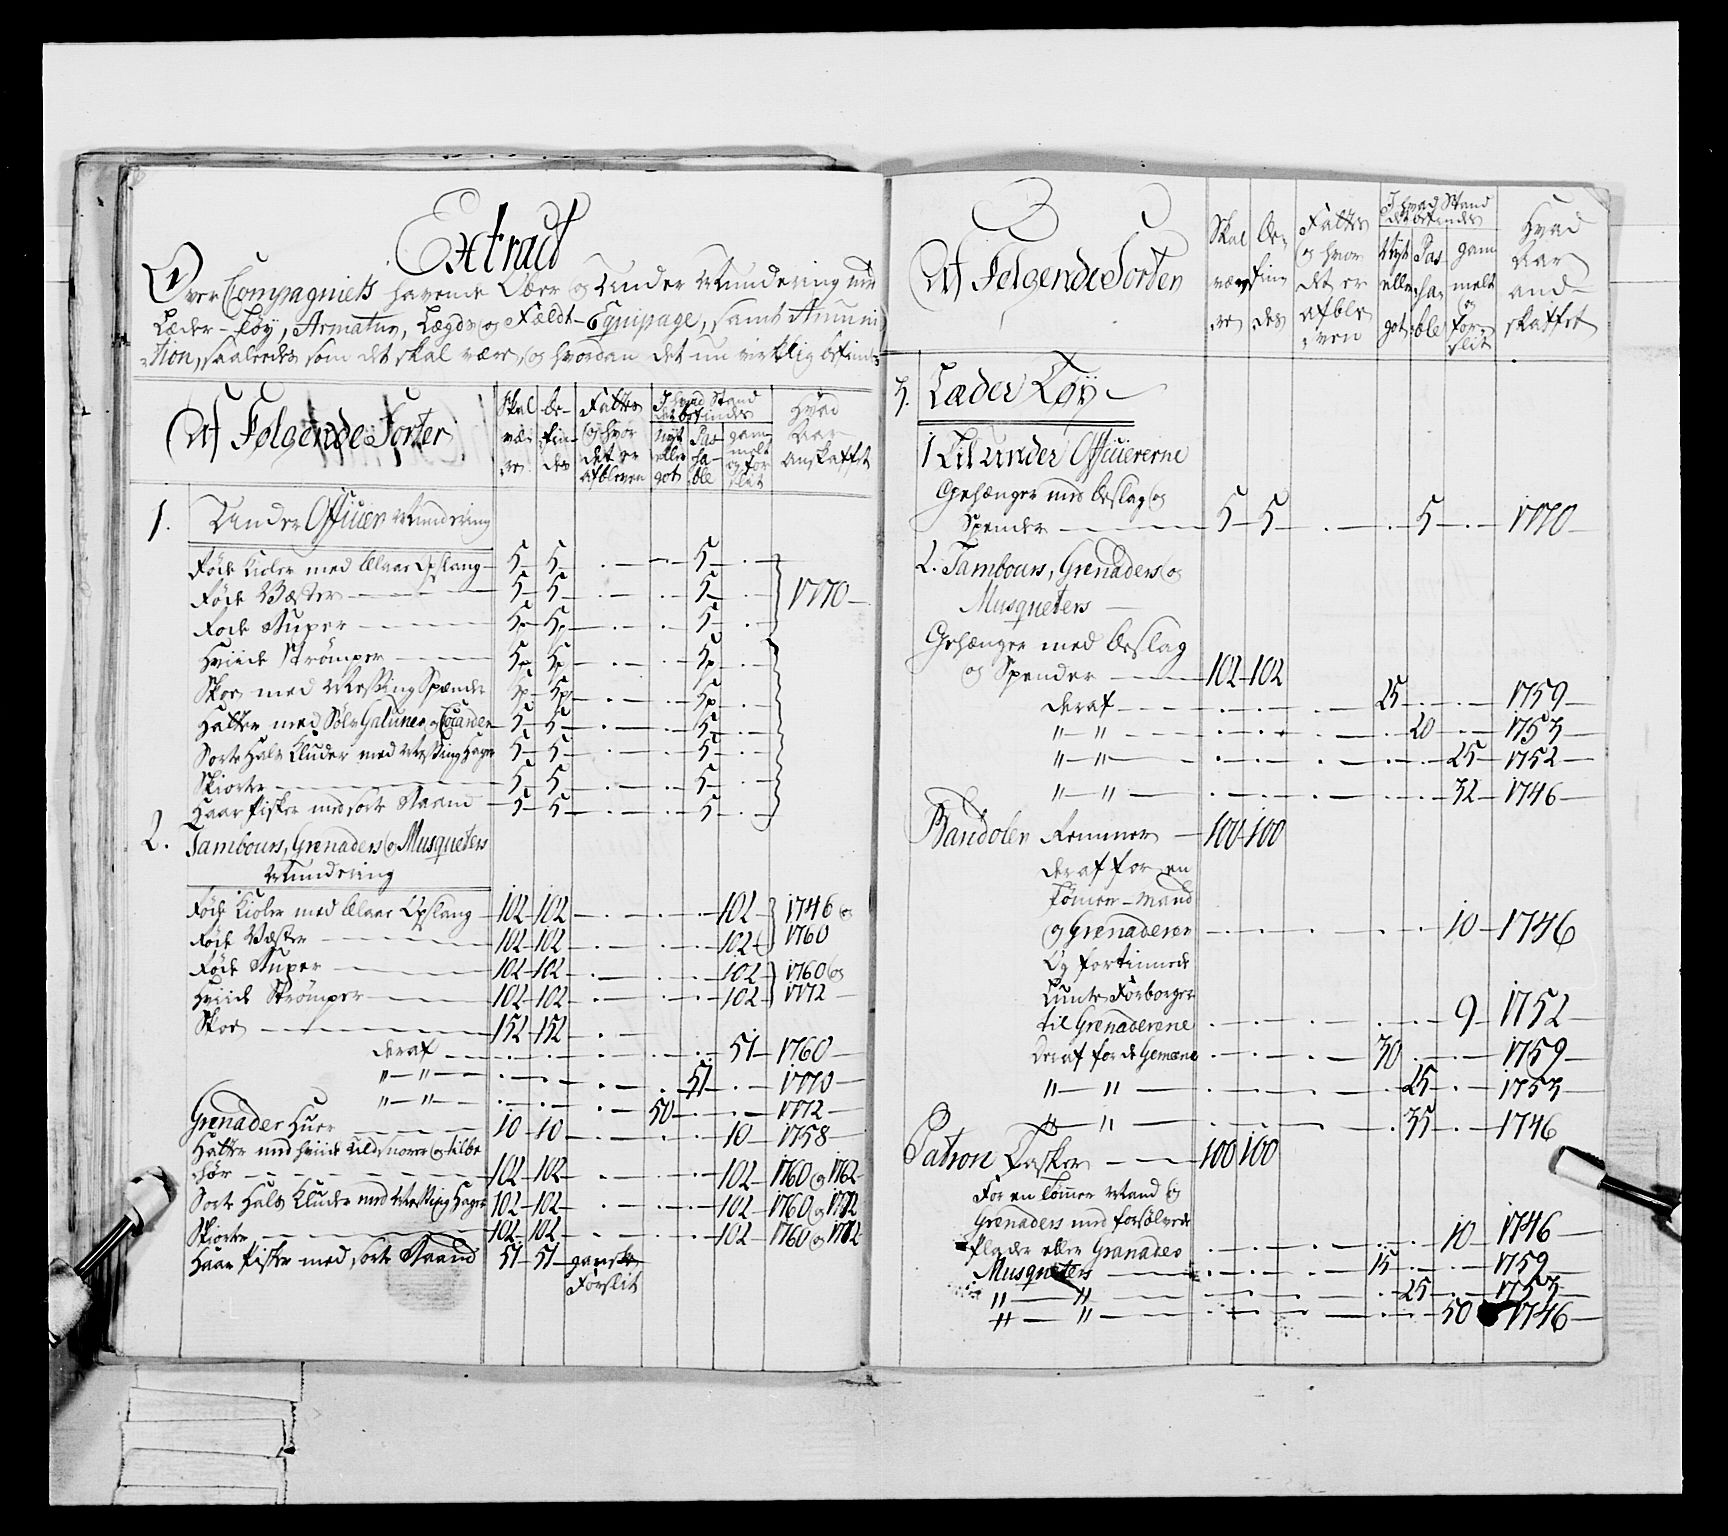 Extract
Over Compagniets havende Over og Under Mundering
Læder-Tøy, Armatur, Lægds og Feldt-Equipage, samt Amuni
tion, saaledes som det skal være, og hvordan det nu virklig befindes
Af Følgende Sorter
Skal være
Befindes
Fattes og hvor det er afbleven
I hvad Stand det befindes
Nyt eller got
Passable
gammelt og forslit
Hvad Aar anskaffet
1. Under Officier Mundering
Røde Kioler med blaae Opslang 5 5 5
Røde Væster 5 5 5 1770
Røde Buxer 5 5 5
Hviide Strömper 5p 5p 5p
Skoe med Messing Spænder 5p 5p 5p
Hatter med Sölv Galuner og Cocarder 5 5 5
Sorte Hals Kluder med Messing Hager 5 5 5
Skiorter 5 5 5
Haar Pisker med sort Baand 5 5 5
2. Tambours, Grenaders og Musqueters
Mundering
Røde Kioler med blaae Opslang 102 102 102 1746 og
Røde Væster 102 102 102 1760
Røde Buxer 102 102 102 1760 og
Hviide Strömper 102 102 102 1772
Skoe 152 152
deraf 51 1760
" " 51 1770
" " 50 1772
Grenader Huer 10 10 10 1758
Hatter med hviide Uldsnorer og tilbe
hør 102 102 102 1760 og 1762
Sorte Hals Kluder med Messing Hager 102 102 102 1760 og 1772
Skiorter 102 102 102 1760 og 1772
Haar Pisker med sort Baand 51 51 ganske
Forslit
Af Følgende Sorter
Skal være
Befindes
Fattes og hvor det er afbleven
I hvad Stand det befindes
Nyt eller got
Passable
gammelt og forslit
Hvad Aar andskaffet
3. Læder Tøy
1 Til under Officiererne
Gehænger med beslag og
Spender 5 5 5 1770
2. Tambours, Grenaders og
Musqueters
Gehænger med beslag
og Spender 102 102
deraf 25 1759
" " 20 1753
" " 25 1752
" " 32 1746
Bandoler Remmer 100 100
deraf for en
Tömer-Mand
og Grenaderer 10 1746
Og fortinnede
Lunte Forborger
til Grenaderene 9 1752
Deraf for de Gemene 30 1759
" " 25 1753
" " 35 1746
Patron Tasker 100 100
For en Tömer Mand og
Grenaders med forsölvede
Plader eller Granader 10 1746
Musqueters 15 1759
" " 25 1753
" " 50 1746